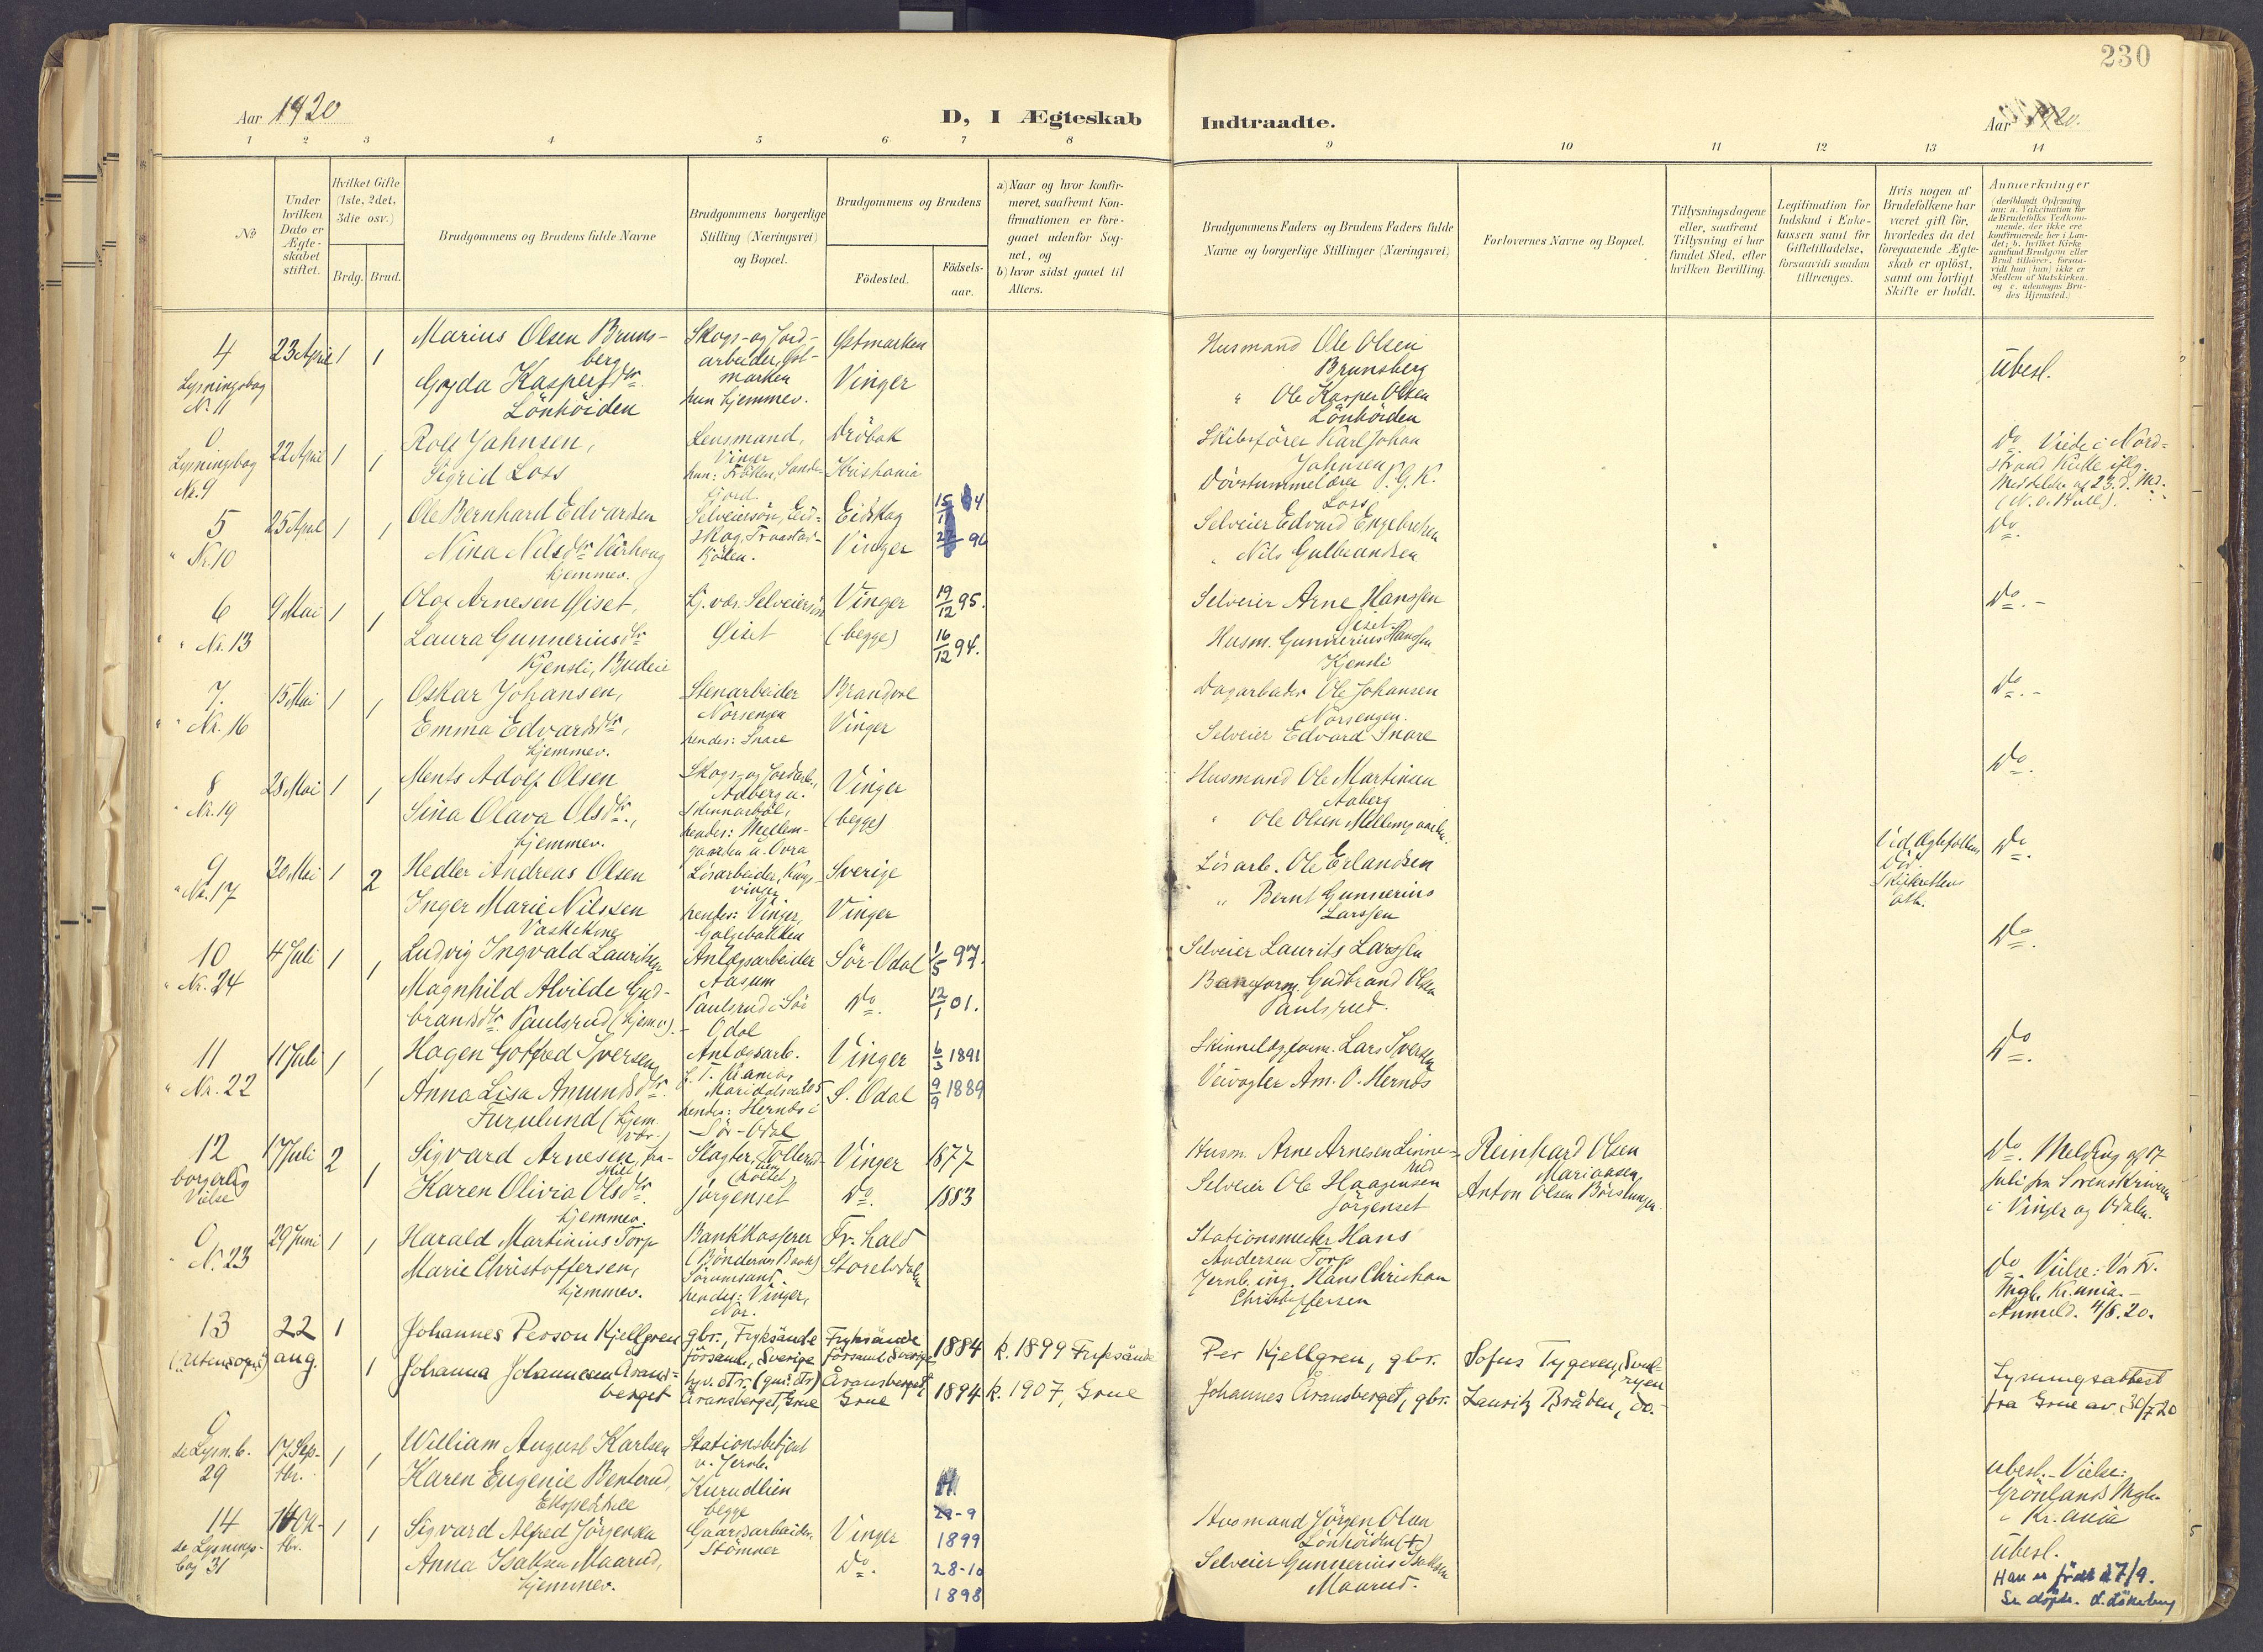 230
Aar 1920
D, I Ægteskab
Indtraadte.
Aar 1920.
1 2 3 4 5 6 7 8 9 10 11 12 13 14
No
Under hvilken Dato er Ægteskabet stiftet.
Hvilket Gifte (1ste, 2det, 3die osv.)
Brdg. Brud.
Brudgommens og Brudens fulde Navne
Brudgommens borgerlige Stilling (Næringsvei) og Bopæl.
Brudgommens og Brudens
Fødested.
Fødselsaar.
a) Naar og hvor konfirmeret, saafremt Konfirmationen er foregaaet udenfor Sognet, og
b) hvor sidst gaaet til Alters.
Brudgommens Faders og Brudens Faders fulde Navne og borgerlige Stillinger (Næringsvei)
Forlovernes Navne og Bopæl.
Tillysningsdagene eller, saafremt Tillysning ei har fundet Sted, efter hvilken Bevilling.
Legitimation for Indskud i Enkekassen samt for Giftetilladelse, forsaavidt saadan tiltrænges.
Hvis nogen af Brudefolkene har været gift før, hvorledes da det foregaaende Ægteskab er opløst, samt om lovligt Skifte er holdt.
Anmerkninger (deriblandt Oplysning om: a. Vakcination for de Brudefolks Vedkommende, der ikke ere konfirmerede her i Landet; b. hvilket Kirkesamfund Brudgom eller Brud tilhører, forsaavidt han (hun) ikke er Medlem af Statskirken. og c. udensogns Brudes Hjemsted.)
4 23 April 1 1
Lysningsbog
Nr. 11
Marius Olsen Brunsberg
Gyda Kaspersdtr.
Lönhöiden
Skogs- og Jordarbeider, Östmarken
hun hjemmev.
Östmarken
Vinger
Husmand Ole Olsen
Brunsberg
" Ole Kasper Olsen
Lönhöiden
Ubesl.
0 22 April 1 1
Lysningsbog
Nr. 9
Rolf Johnsen,
Sigrid Loss
Lensmand,
Vinger
hun: Fröken, Sandefjord.
Dröbak
Kristiania
Skibsförer Karl Johan
Johnsen
Dövstummelærer P. G. K.
Loss
Do. Viede i Nordstrand Kirke iflg.
Meddelelse af 23. d. Md.
5 25 April 1 1
" Nr. 10
Ole Bernhard Edvardsen
Nina Nilsdtr. Vårhaug
hjemmev.
Selveiersön, Eidskog,
Eidskog
Vinger
Selveier Edvard Engebretsen
" Nils Gulbrandsen
Do.
6 9 Mai 1 1
" Nr. 13
Olaf Arnesen Giset,
Laura Gunneriusdtr.
Kjensli, Budeie
Hj. vær. Selveiersön
Giset
Vinger
(begge)
19/12 95.
16/12 94.
Selveier Arne Hanssen
Giset
Husm. Gunnerius Hanssen
Kjensli
Do. -
7. 15 Mai 1 1
" Nr. 16
Oskar Johansen,
Emma Edvardsdtr.,
hjemmev.
Stenarbeider
Norsengen
hendes: Snare
Brandval
Vinger
Dagarbeider Ole Johansen
Norsengen.
Selveier Edvard Snare
Do. -
8 28 Mai 1 1
" Nr. 19
Ments Adolf Olsen
Sina Olava Olsdtr.,
hjemmev.
Skogs- og Jordarb.,
hendes: Mellemgaarden u. Ovra
Vinger
(begge)
Husmand Ole Martinsen
Aaberg
" Ole Olsen Mellemgaarden
Do.
9 30 Mai 1 2
" Nr. 17
Hedler Andreas Olsen
Inger Marie Nilssen
Vaskekone
Lösarbeider, Kongsvinger
hendes: Vinger,
Sverige
Vinger
Lösarb. Ole Erlandsen
" Bernt Gunnerius
Larssen
Ved Ægtefellens
Död
Skifterettens
att.
Do.
10 4 Juli 1 1
" Nr. 24
Ludvig Ingvald Lauritsen
Magnhild Alvilde Gudbrandsdtr. Paulsrud (hjemv.)
Anlægsarbeider
Aasum
Paulsrud i Sör-Odal
Sör-Odal
Do.
1/5 97.
12/1 01.
Selveier Laurits Larssen
Baneform. Gudbrand Olsen
Paulsrud.
Do.
11 11 Juli 1 1
" Nr. 22
Hagen Gotfred Iversen
Anna Lisa Amundsdtr.
Furulund (hjem.vær.)
Anlægsarb.
f. T. Kr.ania,
Maridalsvei 205
hendes: Hernes i
Sör-Odal
Vinger
S. Odal
6/3 1891
9/9 1889
Skinnelægform. Lars Iversen
Veivogter Am. O. Hernes
Do.
12 17 Juli 2 1
borgerlig
Vielse
Sigvard Arnesen, fraskilt
Karen Olivia Olsdtr.
hjemmev.
Slagter,
Jörgenset
Vinger
Do.
1877
1883
Husm. Arne Arnesen Linnerud
Selveier Ole Haagensen
Jörgenset
Reinhard Olsen
Mariaasen
Anton Olsen Börslungen
Do. Melding af 17
Juli fra Sorenskriveren
i Vinger og Odalen.
0 29 Juni 1 1
" N. 23
Harald Martinius Torp
Marie Christoffersen,
hjemmev.
Bankkasserer
(Böndernes Bank)
Sörumsand.
hendes: Vinger,
Nor.
Fr.hald
Storelvdalen
Stationsmester Hans
Andersen Torp
Jernb. ing. Hans Christian
Christoffersen
Do. Vielse: Vor Fr.
Mgh. Kr.ania. -
Anmeld. 4/8. 20.
13 22 1
(Utensogns) aug. 1
Johannes Person Kjellgren
Johanna Johannesen Åransberget
gbr., Fryksände
församl., Sverige
Åransberget, Grue
Fryksände
församl. Sverige
Åransberget
Grue
1884
1894
k. 1899 Fryksände
k. 1907, Grue
Per Kjellgren, gbr.
Johannes Åransberget, gbr.
Sofus Tygesen,
Lauritz Bråten, do.
Lysningsattest
fra Grue av. 30/7 20
0 17 Sep- 1 1
se Lysn.b. tbr.
29
William August Karlsen
Karen Eugenie Benterud,
Stationsbetjent
v. Jernb.
Kurudlien
begge
ubesl. - Vielse:
Grönlands Mgh.
i Kr.ania
14 14 Ok- 1 1
se Lysnings- tbr.
bog 31
Sigvard Alfred Jörgensen
Anna Isaksen Maarud,
hjemmev.
Gaardsarbeider,
Stömner
Vinger
Do.
29-9
1899
28-10
1898
Husmand Jörgen Olsen
Lönhöiden (+)
Selveier Gunnerius Isaksen
Maarud.
Ubesl.
Han er født 27/9.